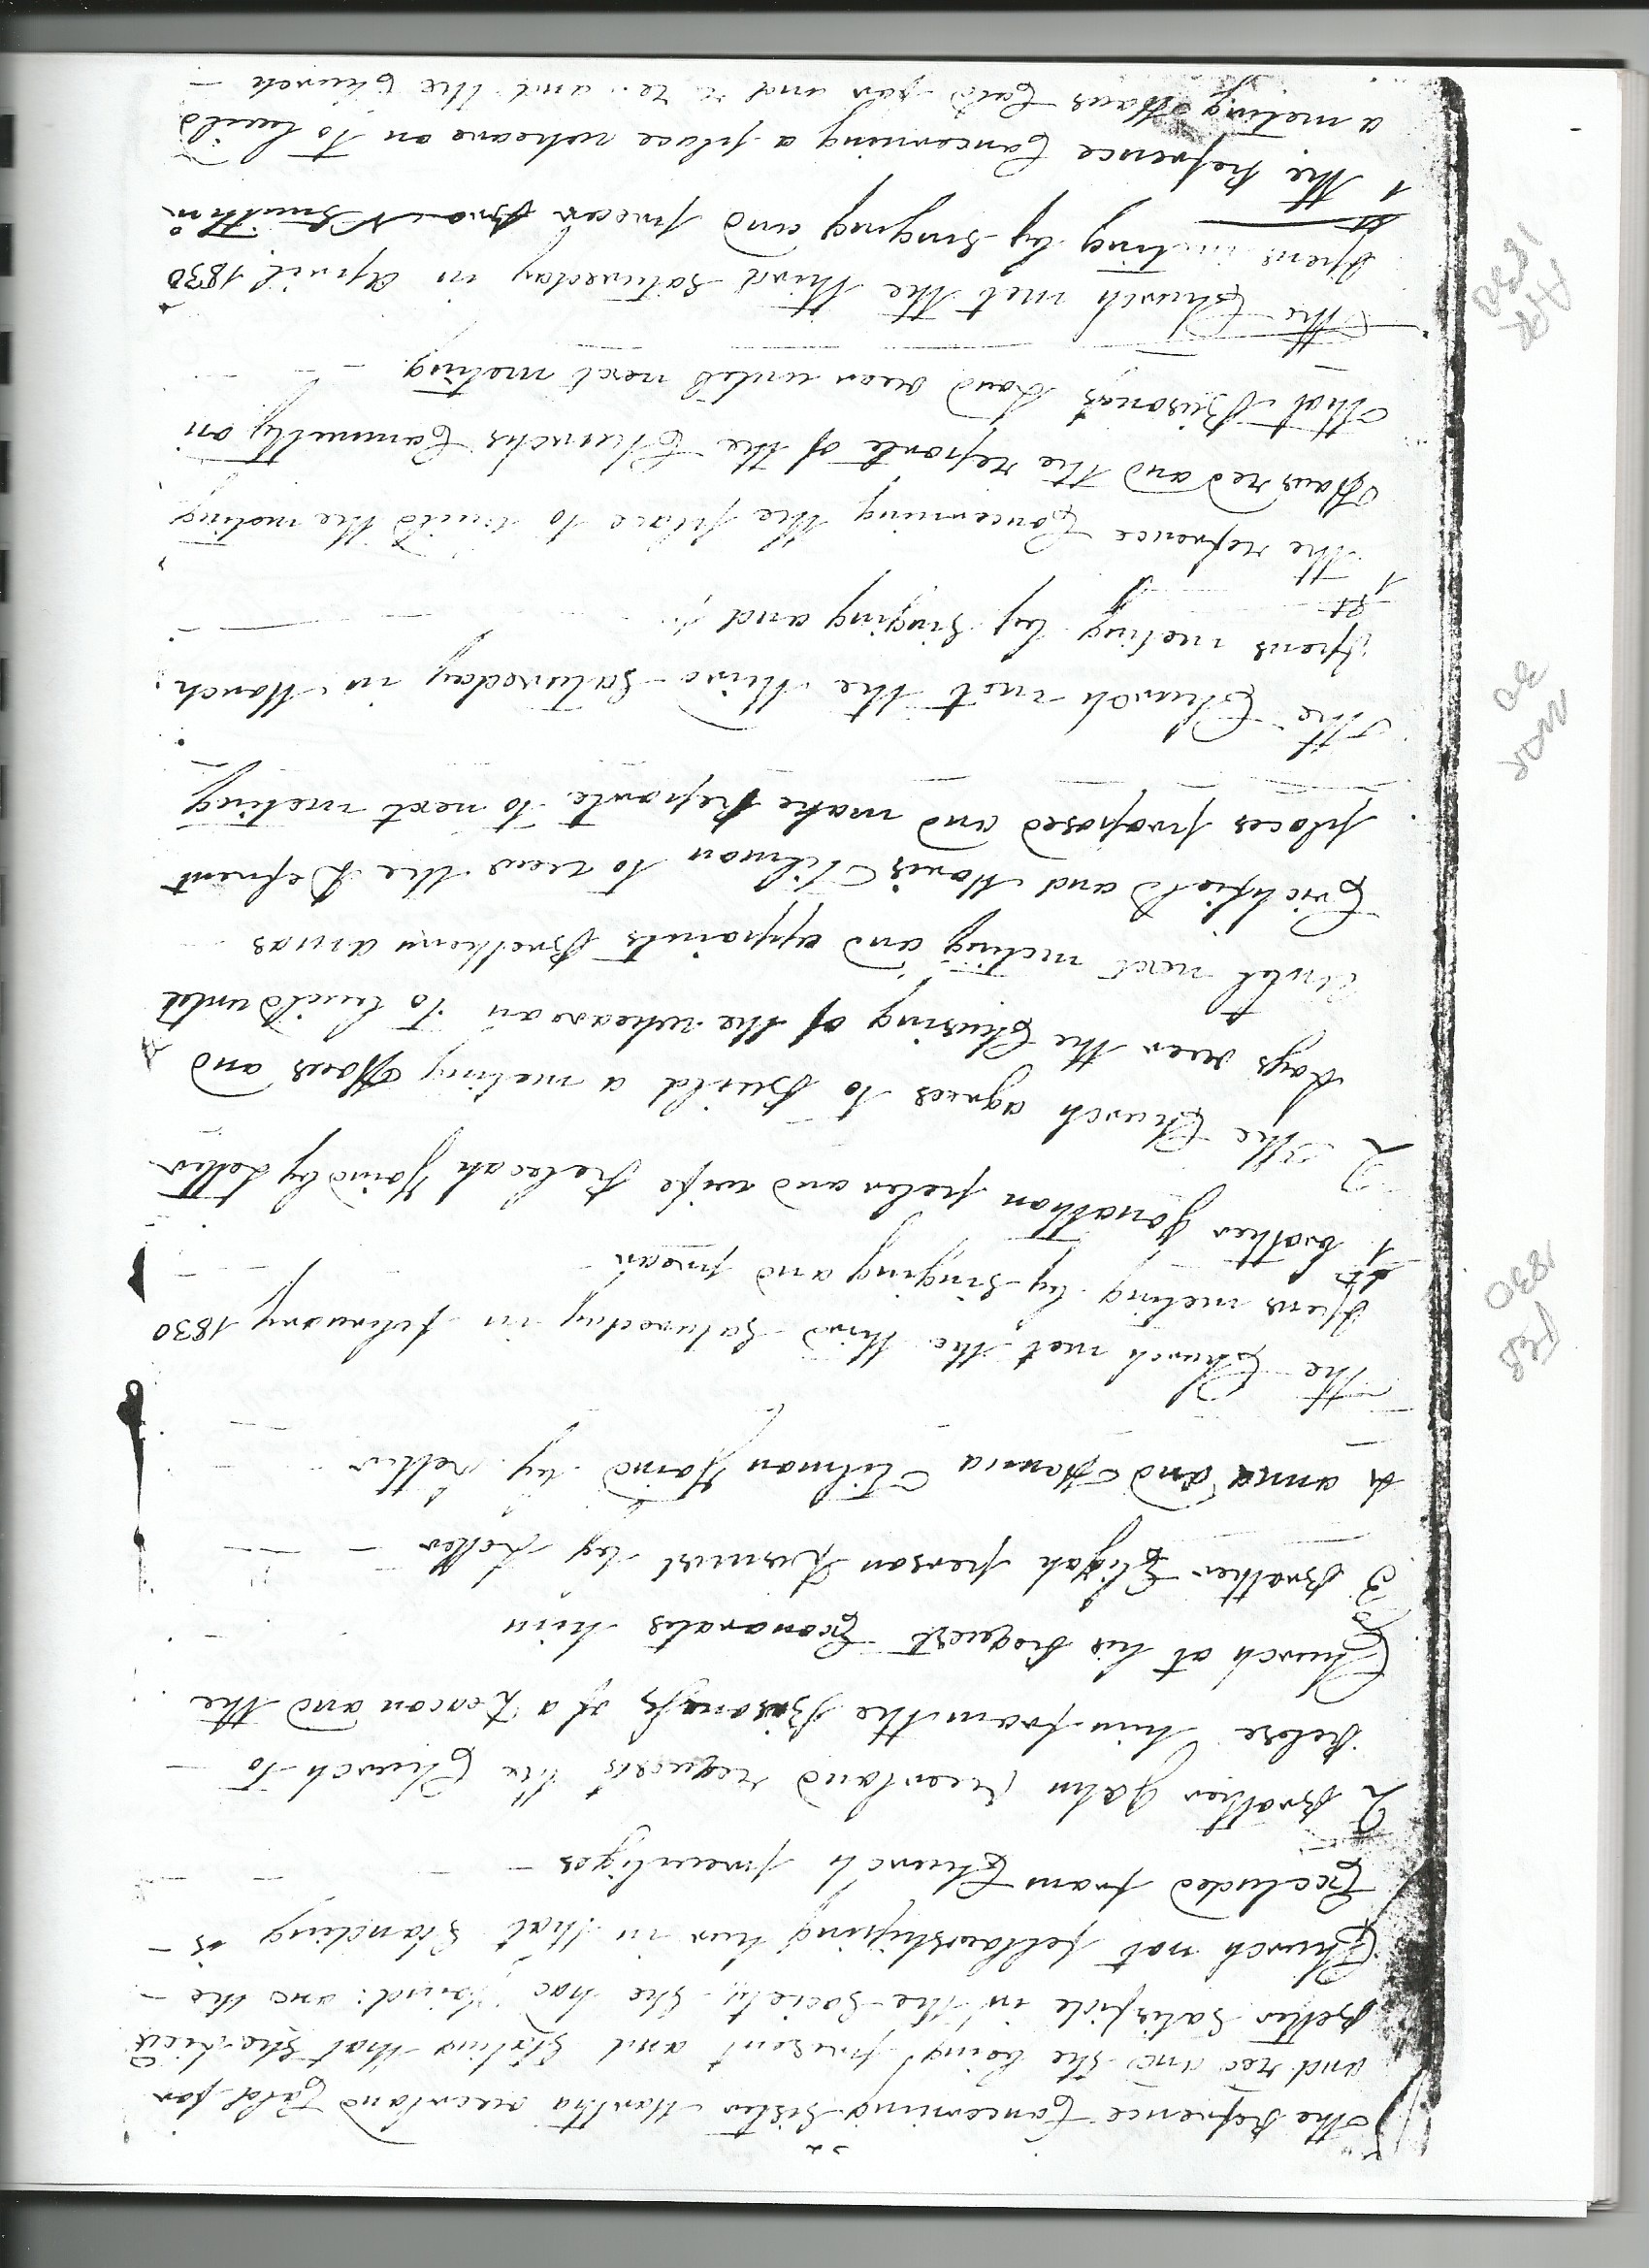 22
The Refrence Concerning Sister Martha overland Cald for
and red and She being present and Stating that She Lied
better Satisfide in the Society She had Joind: and the
Church not fellowshiping hur in that Standing is
Excluded from Church previliges
2 Brother John Overland requests the Church to
Relese him from the Bisonefs of a Deacon and the
Church at his Request Exonarates him
3 Brother Elijah person Dismist by Letter
4 anna and Hanna Tilman Joind by Letter
The Church met the third Saturday in february 1830
FEB 1830
opens meting by Singing and prear
1st brother Jonathan peler and wife Rebecah Joind by Letter
2 The Church agrees to Build a meting Hous and
Lays over the Chusing of the wheare on to build untill
Until next meting and appoints Brethern amas
Crichfield and Haris Tilman to view the Defrent
places proposed and make Reporte to next meting
The Church met the third Saturday in March
MAR 30
opens meting by Singing and
1st the refrence Concerning the place to build the meting
Hous red and the reporte of the Churchs Committy on
that Bisonefs Laid over until next meting
The Church met the third Saturday in April 1830
APR 1830
opens meting by Singing and prear
1 The Refrence Concerning a place wheare on to build
a meting Hous Cald for and re and the Church